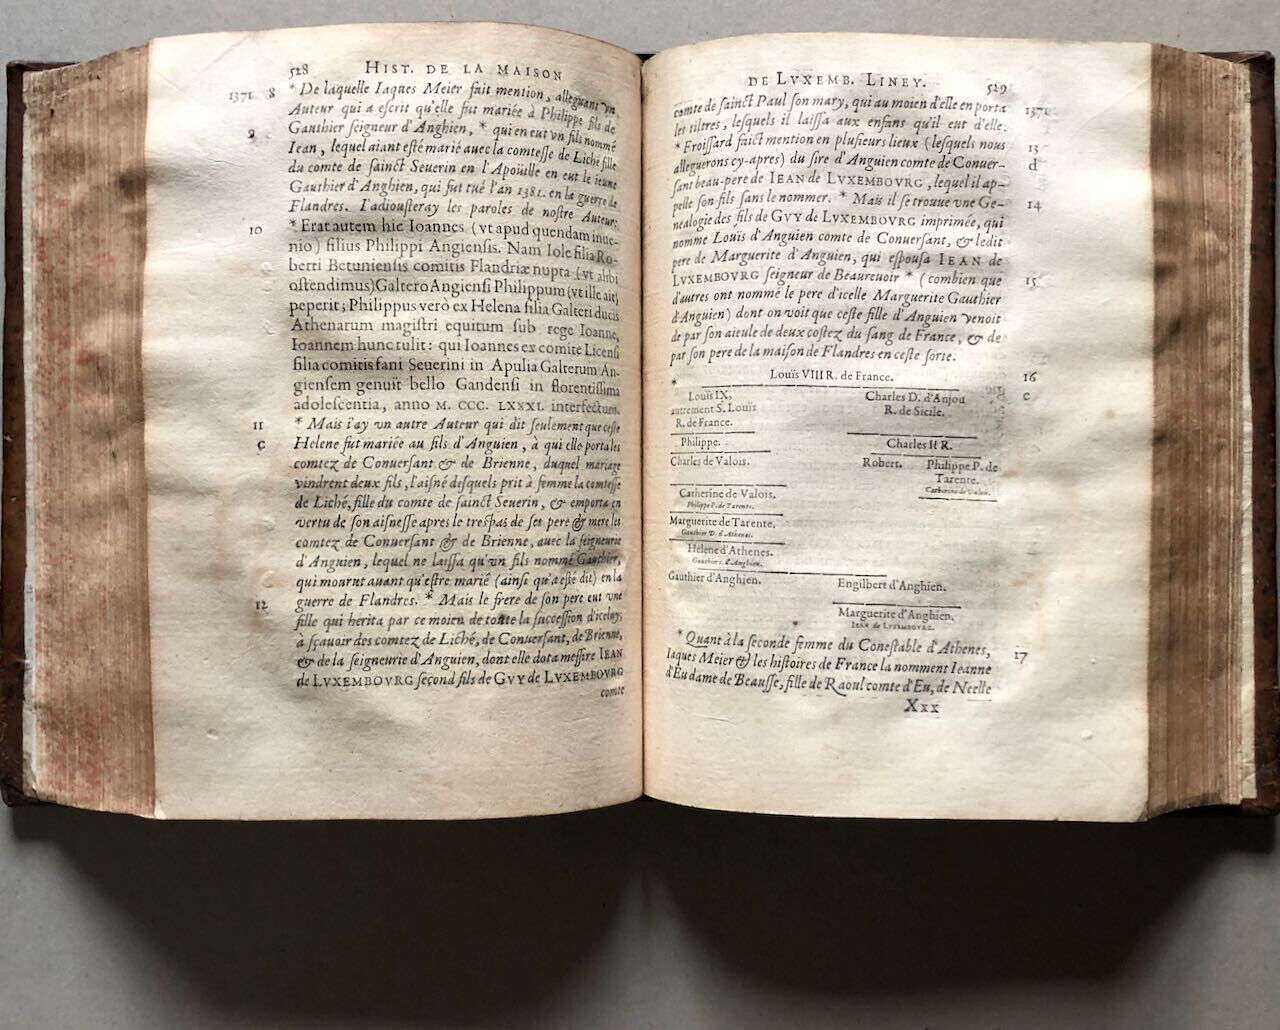 528 HIST. DE LA MAISON
1371 8 * De laquelle Iaques Meier fait mention, alleguant vn
Auteur qui a escrit qu'elle fut mariée à Philippe fils de
9 Gauthier seigneur d'Anghien, * qui en eut vn fils nommé
Iean, lequel aiant esté marié auec la comtesse de Liché fille
du comte de sainct Seuerin en l'Apouille en eut le ieune
Gauthier d'Anghien, qui fut tué l'an 1381. en la guerre de
Flandres. I'adiousteray les paroles de nostre Auteur:
10 * Erat autem hic Ioannes (vt apud quendam inue-
nio) filius Philippi Angiensis. Nam Iole filia Ro-
berti Betuniensis comitis Flandriæ nupta (vt alibi
ostendimus) Galtero Angiensi Philippum (vt ille ait)
peperit; Philippus verò ex Helena filia Galteri ducis
Athenarum magistri equitum sub rege Ioanne,
Ioannem hunc tulit: qui Ioannes ex comite Licensi
filia comitis fani Seuerini in Apulia Galterum An-
giensem genuit bello Gandensi in florentissima
adolescentia, anno M. CCC. LXXXI. interfectum.
11 * Mais i'ay vn autre Auteur qui dit seulement que ceste
c Helene fut mariée au fils d'Anguien, à qui elle porta les
comtez de Conuersant & de Brienne, duquel mariage
vindrent deux fils, l'aisné desquels prit à femme la comtesse
de Liché, fille du comte de sainct Seuerin, & emporta en
vertu de son aisnesse apres le trespas de ses pere & mere les
comtez de Conuersant & de Brienne, auec la seigneurie
d'Anguien, lequel ne laissa qu'vn fils nommé Gauthier,
qui mourut auant qu'estre marié (ainsi qu'a esté dit) en la
12 guerre de Flandres. * Mais le frere de son pere eut vne
fille qui herita par ce moien de toute la succession d'iceluy,
à sçauoir des comtez de Liché, de Conuersant, de Brienne,
& de la seigneurie d'Anguien, dont elle dota messire IEAN
de LVXEMBOVRG second fils de GVY de LVXEMBOVRG
comte
DE LVXEMB. LINEY. 529
comte de sainct Paul son mary, qui au moien d'elle en porta 1371
les tiltres, lesquels il laissa aux enfans qu'il eut d'elle.
* Froissard faict mention en plusieurs lieux (lesquels nous 13
alleguerons cy-apres) du sire d'Anguien comte de Conuer- d
sant beau-pere de IEAN de LVXEMBOVRG, lequel il ap-
pelle son fils sans le nommer. * Mais il se trouue vne Ge- 14
nealogie des fils de GVY de LVXEMBOVRG imprimée, qui
nomme Louis d'Anguien comte de Conuersant, & ledit
pere de Marguerite d'Anguien, qui espousa IEAN de
LVXEMBOVRG seigneur de Beaureuoir * (combien que 15
d'autres ont nommé le pere d'icelle Marguerite Gauthier
d'Anguien) dont on voit que ceste fille d'Anguien venoit
de par son aieule de deux costez du sang de France, & de
par son pere de la maison de Flandres en ceste sorte.
* Louïs VIII R. de France. 16
Louïs IX, Charles D. d'Anjou e
autrement S. Louïs R. de Sicile.
R. de France.
Philippe. Charles II R.
Charles de Valois. Robert. Philippe P. de
Tarente.
Catherine de Valois. Catherine de Valois.
Philippe P. de Tarente.
Marguerite de Tarente.
Gauthier D. d'Athenes.
Helene d'Athenes.
Gauthier c. d'Anghien.
Gauthier d'Anghien. Engilbert d'Anghien.
Marguerite d'Anghien.
IEAN de LVXEMBOVRG.
* Quant à la seconde femme du Conestable d'Athenes, 17
Iaques Meier & les histoires de France la nomment Ieanne
d'Eu dame de Beausse, fille de Raoul comte d'Eu, de Neelle
Xxx